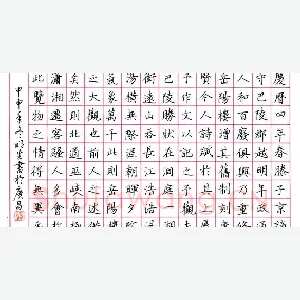 慶曆四年春滕子京謫
守巴陵郡越明年政通
人和百廢俱興乃重修
岳陽樓增其舊制刻唐
賢今人詩賦於其上屬
予作文以記之予觀夫
巴陵勝狀在洞庭一湖
銜遠山吞長江浩浩湯
湯橫無際涯朝暉夕陰
氣象萬千此則岳陽樓
之大觀也前人之述備
矣然則北通巫峽南極
瀟湘遷客騷人多會於
此覽物之情得無異乎
甲申年冬明書於廣昌